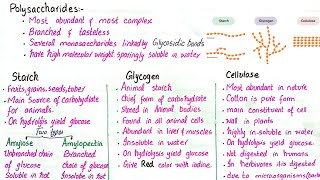 Polysaccharides:-
• Most abundant & most complex
• Branched & tasteless
• Several monosaccharides linked by Glycosidic bonds
• have high molecular weight sparingly soluble in water
Starch Glycogen Cellulose
Starch
• Fruits, grains, seeds, tuber
• Main Source of carbohydrate
for animals.
• On hydrolysis yield glucose
Two types
Amylose
Unbranched
chain of
glucose
Soluble in hot
Amylopectin
Branched
chain of
glucose
Insoluble in hot
Glycogen
• Animal starch
• Chief form of carbohydrate
• Stored in Animal bodies
• Found in all animal cells
• Abundant in liver & muscles
• Insoluble in water
• On hydrolysis yield glucose
• Give Red color with iodine.
Cellulose
• Most abundant in nature
• Cotton is pure form
• main constituent of cell
wall in plants
• highly in-soluble in water
• On hydrolysis yield glucose
• Not digested in humans
• In herbivores its digested
due to microorganisms